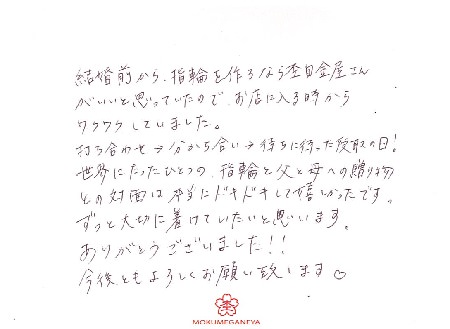 結婚前から、指輪を作るなら杢目金屋さん
がいいと思っていたので、お店に入る時から
ワクワクしていました。
打ち合わせ→分かち合い→待ちに待った受取の日!
世界にたったひとつの、指輪と父と母への贈り物
との対面は本当にドキドキして嬉しかったです。
ずっと大切に着けていたいと思います。
ありがとうございました!!
今後ともよろしくお願い致します♡
MOKUMEGANEYA